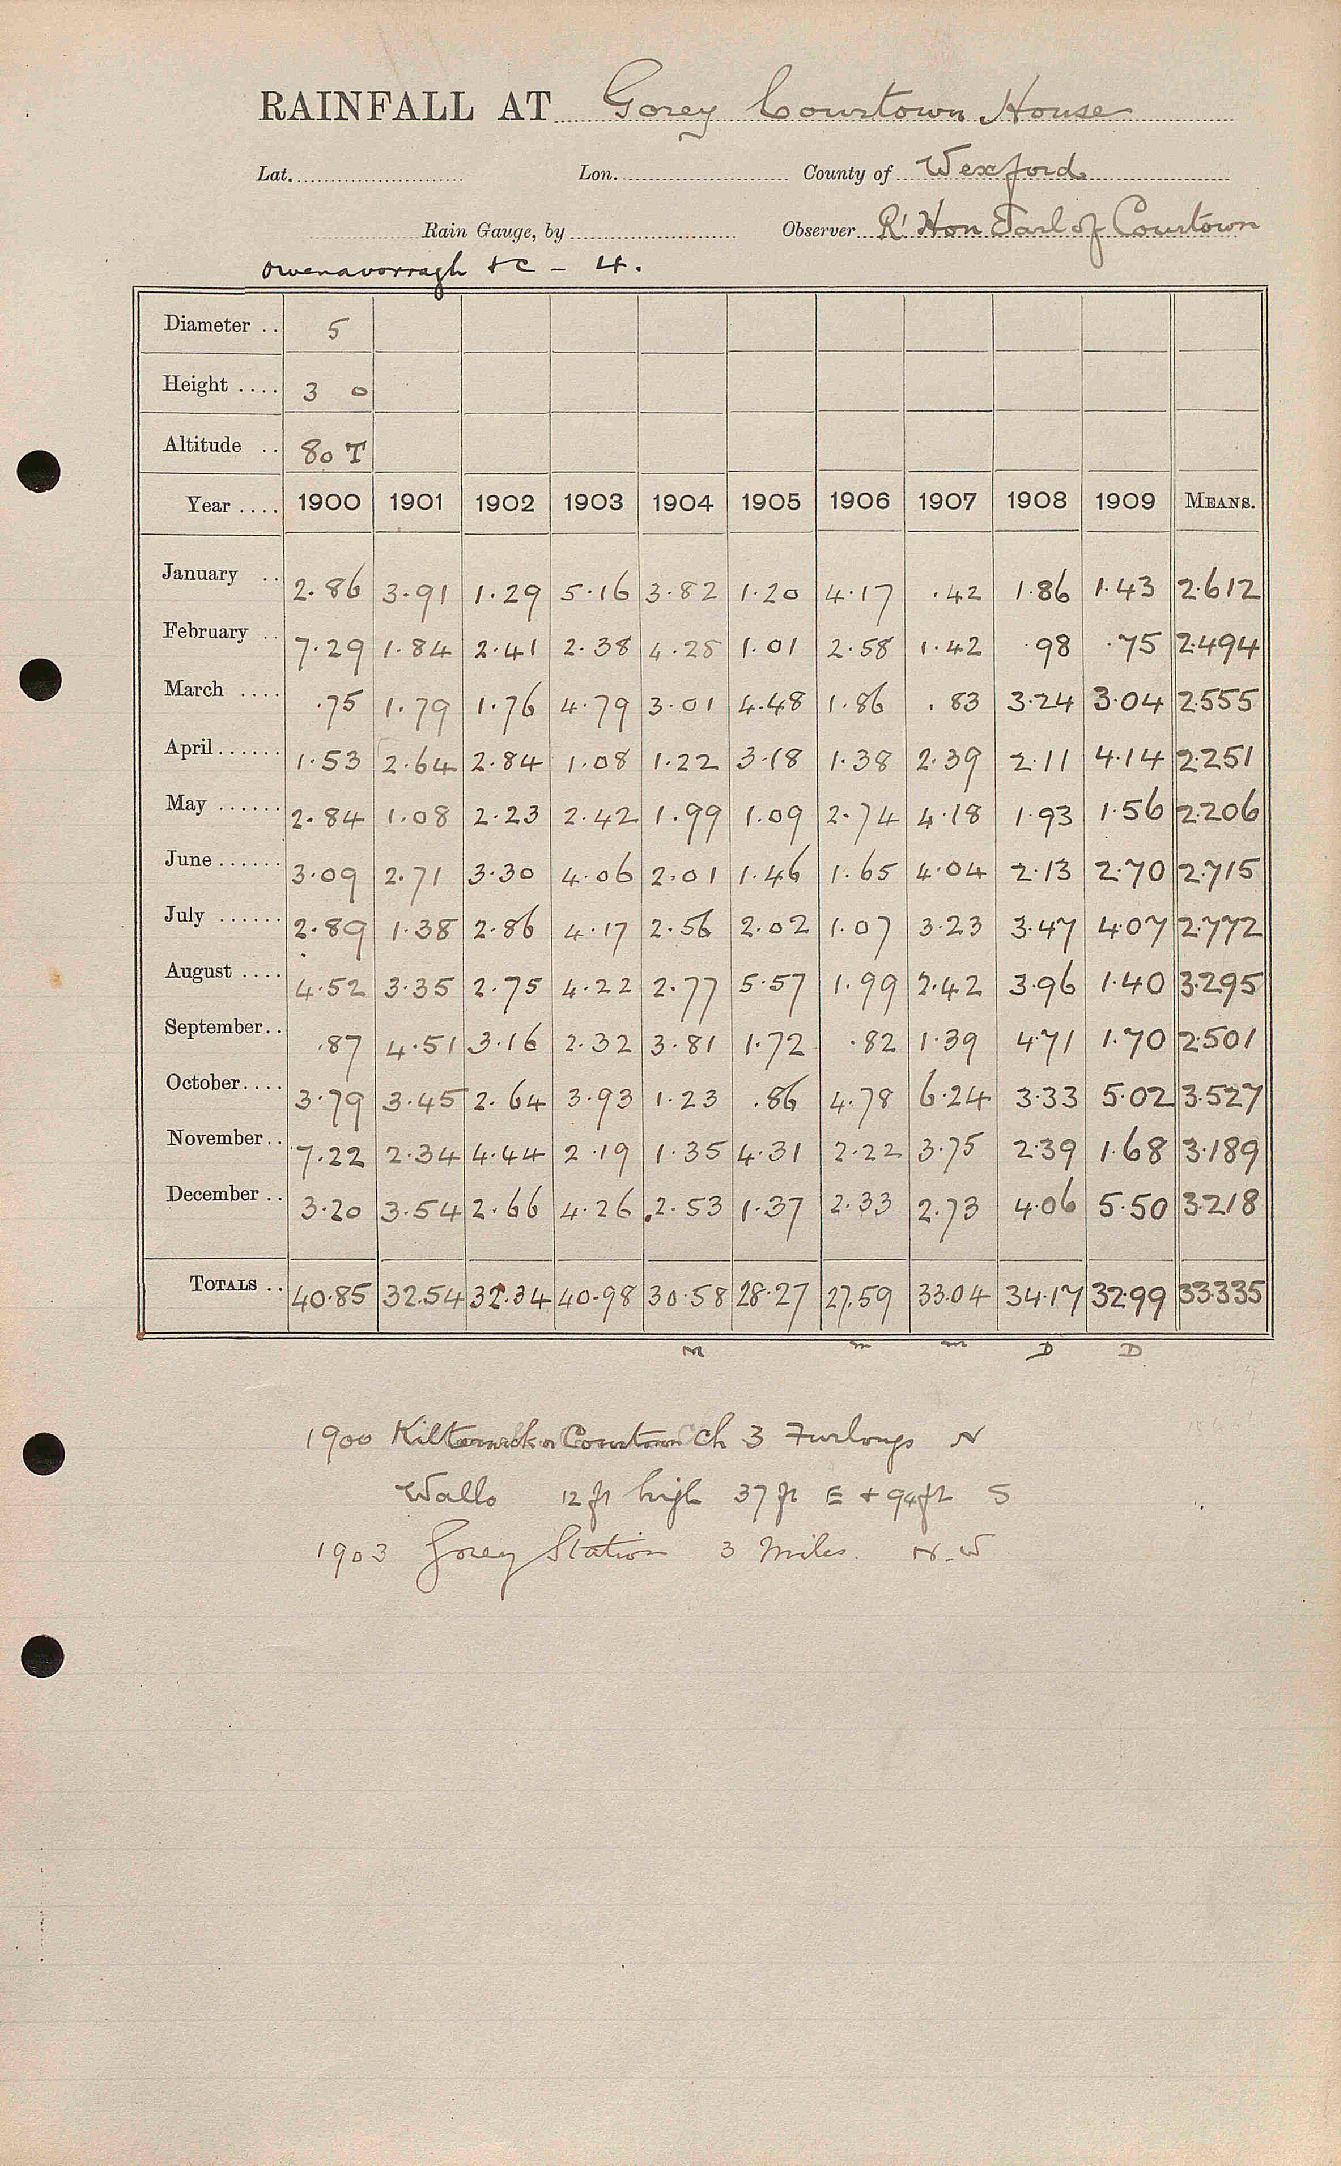 RAINFALL AT Gorey Courtown House
Lat. Lon. County of Wexford
Rain Gauge, by Observer Rt Hon Earl of Courtown
Owenavorragh &c - 4.
Diameter .. 5
Height .... 3 0
Altitude .. 80 T
Year .... 1900 1901 1902 1903 1904 1905 1906 1907 1908 1909 MEANS.
January .. 2.86 3.91 1.29 5.16 3.82 1.20 4.17 .42 1.86 1.43 2.612
February .. 7.29 1.84 2.41 2.38 4.28 1.01 2.58 1.42 .98 .75 2.494
March .... .75 1.79 1.76 4.79 3.01 4.48 1.86 .83 3.24 3.04 2.555
April ...... 1.53 2.64 2.84 1.08 1.22 3.18 1.38 2.39 2.11 4.14 2.251
May ...... 2.84 1.08 2.23 2.42 1.99 1.09 2.74 4.18 1.93 1.56 2.206
June ...... 3.09 2.71 3.30 4.06 2.01 1.46 1.65 4.04 2.13 2.70 2.715
July ...... 2.89 1.38 2.86 4.17 2.56 2.02 1.07 3.23 3.47 4.07 2.772
August .... 4.52 3.35 2.75 4.22 2.77 5.57 1.99 2.42 3.96 1.40 3.295
September.. .87 4.51 3.16 2.32 3.81 1.72 .82 1.39 4.71 1.70 2.501
October.... 3.79 3.45 2.64 3.93 1.23 .86 4.78 6.24 3.33 5.02 3.527
November.. 7.22 2.34 4.44 2.19 1.35 4.31 2.22 3.75 2.39 1.68 3.189
December .. 3.20 3.54 2.66 4.26 2.53 1.37 2.33 2.73 4.06 5.50 3.218
TOTALS .. 40.85 32.54 32.34 40.98 30.58 28.27 27.59 33.04 34.17 32.99 33.335
M m m D D
1900 Courtown Ch 3 Furlongs N
Walls 12 ft high 37 ft E + 94 ft S
1903 Gorey Station 3 Miles. N.W